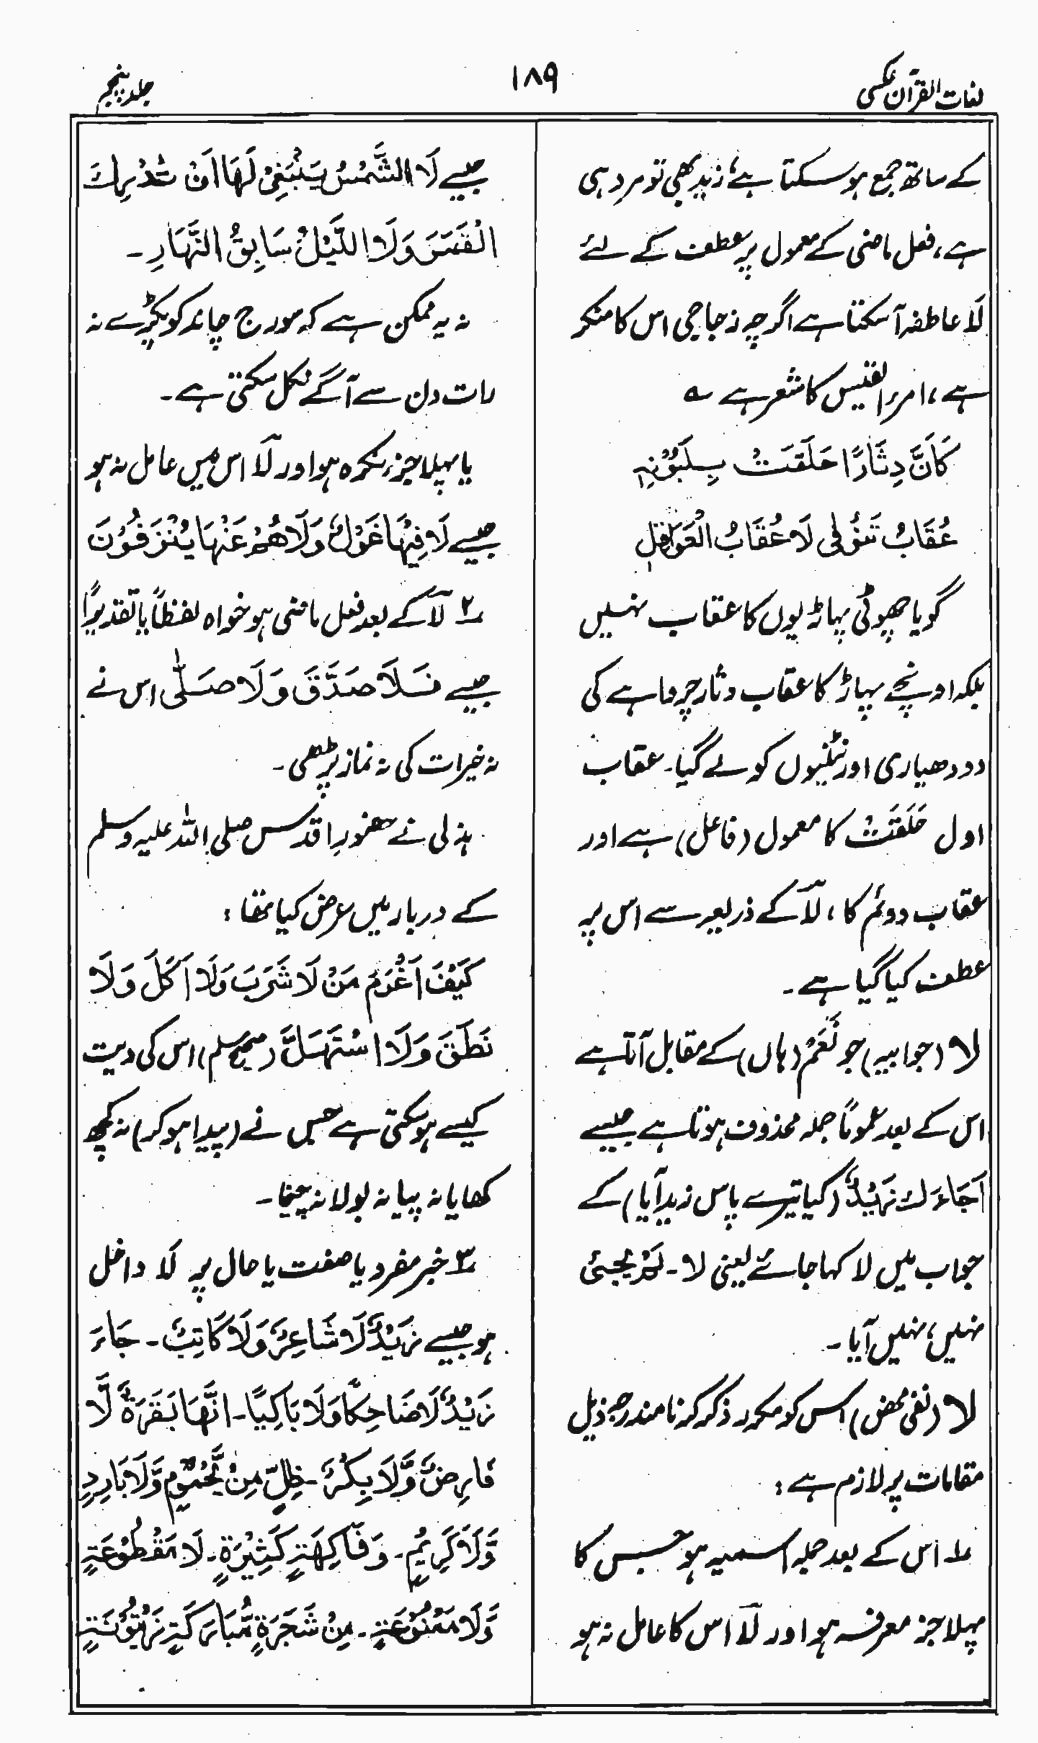 لغات القرآن عکسی
۱۸۹
جلد پنجم
کے ساتھ جمع ہو سکتا ہے، زید بھی تو مرد ہی
ہے، فعل ماضی کے معمول پر عطف کے لئے
لَا عاطفہ آ سکتا ہے اگرچہ زجاجی اس کا منکر
ہے، امرء القیس کا شعر ہے ؎
کَاَنَّ دِثَارًا حَلَّقَتْ بِلَبُوْنِہٖ
عُقَابُ تَنُوْفٰی لَا عُقَابُ الْقَوَاعِلِ
گویا چھوٹی پہاڑیوں کا عقاب نہیں
بلکہ اونچے پہاڑ کا عقاب دثار چرواہے کی
دودھیاری اونٹنیوں کو لے گیا۔ عقاب
اول حَلَّقَتْ کا معمول (فاعل) ہے اور
عقاب دوئم کا، لَا کے ذریعہ سے اس پر
عطف کیا گیا ہے۔
لا (جوابیہ) جو نَعَمْ (ہاں) کے مقابل آتا ہے
اس کے بعد عموماً جملہ محذوف ہوتا ہے جیسے
اَجَاءَكَ زَیْدٌ (کیا تیرے پاس زید آیا) کے
جواب میں لا کہا جائے یعنی لا۔ لَمْ یَجِئْ
نہیں، نہیں آیا۔
لا (نفی محض) اس کو مکرر ذکر کرنا مندرجہ ذیل
مقامات پر لازم ہے:
۱؎ اس کے بعد جملہ اسمیہ ہو جس کا
پہلا جز معرفہ ہو اور لَا اس کا عامل نہ ہو
جیسے لَا الشَّمْسُ یَنْۢبَغِیْ لَهَا اَنْ تُدْرِكَ
الْقَمَرَ وَلَا اللَّیْلُ سَابِقُ النَّهَارِ۔
نہ یہ ممکن ہے کہ سورج چاند کو پکڑے نہ
رات دن سے آگے نکل سکتی ہے۔
یا پہلا جز، نکرہ ہو اور لَا اس میں عامل نہ ہو
جیسے لَا فِیْهَا غَوْلٌ وَلَا هُمْ عَنْهَا یُنْزَفُوْنَ
۲؎ لَا کے بعد فعل ماضی ہو خواہ لفظاً یا تقدیراً
جیسے فَلَا صَدَّقَ وَلَا صَلّٰی اس نے
نہ خیرات کی نہ نماز پڑھی۔
ہذلی نے حضور اقدس صلی اللہ علیہ وسلم
کے دربار میں عرض کیا تھا:
کَیْفَ اَغْرَمُ مَنْ لَا شَرِبَ وَلَا اَکَلَ وَلَا
نَطَقَ وَلَا اسْتَهَلَّ (صحیح مسلم) اس کی دیت
کیسے ہو سکتی ہے جس نے (پیدا ہو کر) نہ کچھ
کھایا نہ پیا نہ بولا نہ چیخا۔
۳؎ خبر مفرد یا صفت یا حال پر لَا داخل
ہو جیسے زَیْدٌ لَا شَاعِرٌ وَلَا کَاتِبٌ۔ جَاءَ
زَیْدٌ لَا ضَاحِکًا وَلَا بَاکِیًا۔ اِنَّهَا بَقَرَةٌ لَّا
فَارِضٌ وَّلَا بِکْرٌ۔ ظِلٍّ مِنْ یَّحْمُوْمٍ وَّلَا بَارِدٍ
وَّلَا کَرِیْمٍ۔ وَفَاکِهَةٍ کَثِیْرَةٍ۔ لَا مَقْطُوْعَةٍ
وَّلَا مَمْنُوْعَةٍ۔ مِنْ شَجَرَةٍ مُّبَارَکَةٍ زَیْتُوْنَةٍ